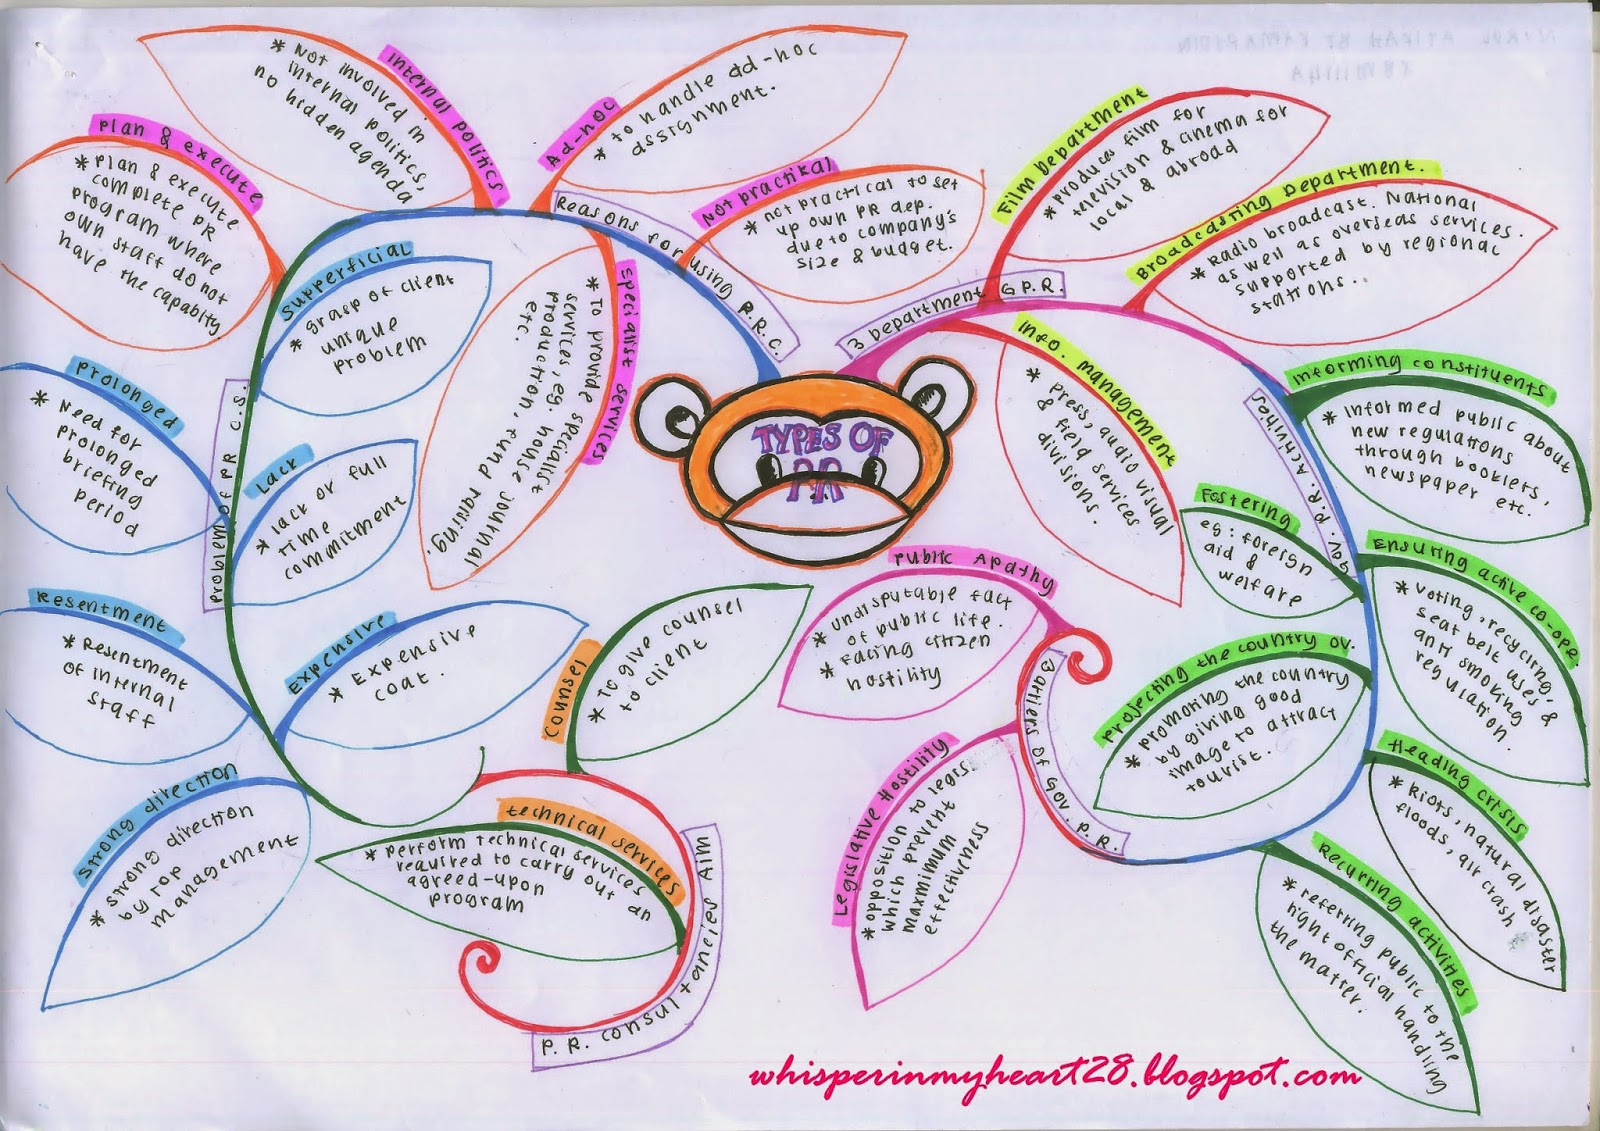 TYPES OF
PR
Reasons for using P.R.C.
Plan & execute
* Plan & execute
complete PR
program where
own staff do not
have the capability
internal politics
* Not involved in
internal politics,
no hidden agenda
Ad-hoc
* to handle ad-hoc
assignment.
Not practikal
* not practical to set
up own PR dep.
due to company's
size & budget.
specialist services
* To provide specialist
services, eg. house journal
production, fund raising.
etc.
Problem of PR C.S.
Supperficial
* grasp of client
unique
problem
Prolonged
* Need for
prolonged
briefing
period
Lack
* lack or full
time
commitment
Resentment
* Resentment
of internal
staff
Expensive
* Expensive
coat.
strong direction
* strong direction
by top
management
P.R. consultancies Aim
counsel
* To give counsel
to client
technical services
* Perform technical services
required to carry out an
agreed-upon
program
3 Department G.P.R.
Film Department
* Produces film for
television & cinema for
local & abroad
Broadcasting Department.
* Radio broadcast. National
as well as overseas services.
supported by regional
stations..
Info. management
* Press, audio visual
& field services
divisions.
Gov. P.R. Activities
Informing constituents
* Informed public about
new regulations
through booklets,
newspaper etc.
Fostering
eg: foreign
aid &
welfare
Ensuring active co-ope
* voting, recycling,
seat belt uses, &
anti smoking
regulation.
Projecting the country ov.
* promoting the country
by giving good
image to attract
tourist.
Heading crisis
* Riots, natural disaster
floods, air crash
Recurring activities
* referring public to the
right official handling
the matter.
Barriers of Gov. P.R.
Public Apathy
* undisputable fact
of public life.
* Facing citizen
hostility
Legislative Hostility
* opposition to legis
which prevent
maxmimum
effectiveness
whisperinmyheart28.blogspot.com